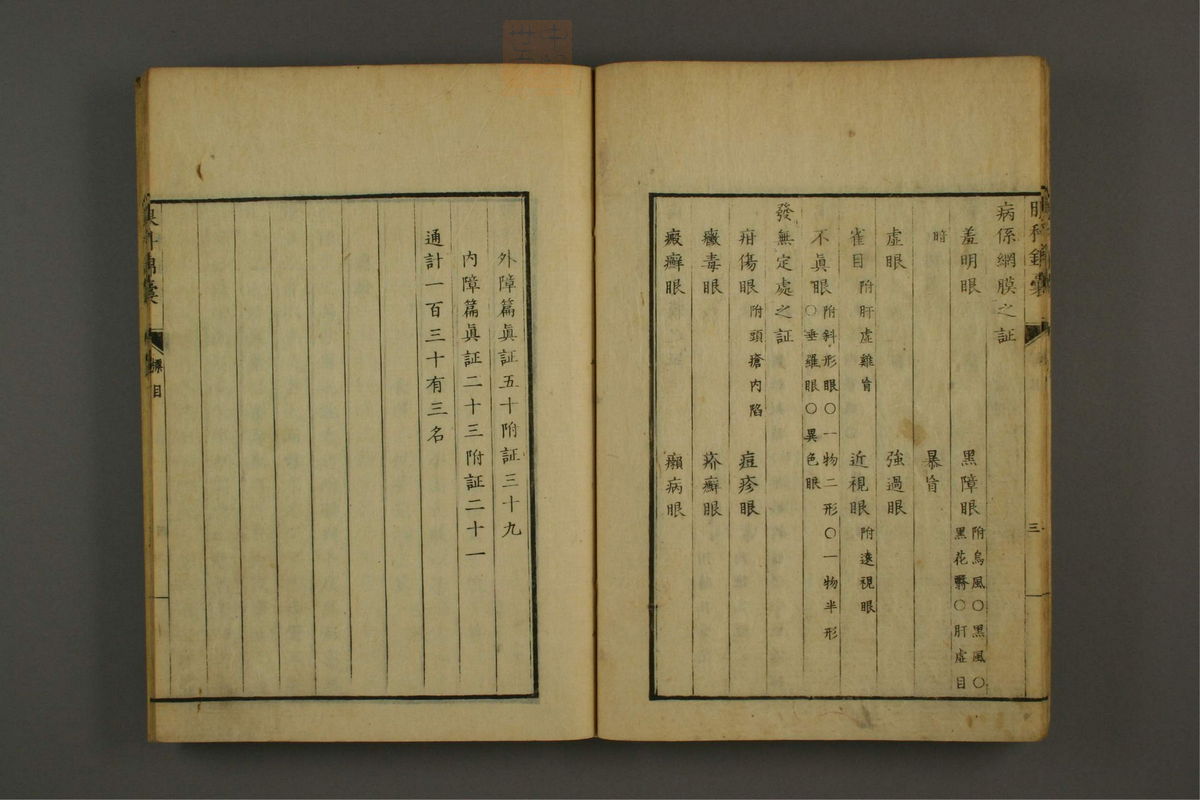 病係網膜之証
羞明眼 黑障眼 附烏風〇黑風〇
黑花翳〇肝虛目
暗
暴盲
虛眼 強過眼
雀目 附肝虛雞盲 近視眼 附遠視眼
不眞眼 附斜形眼〇一物二形〇一物半形
〇垂羅眼〇異色眼
發無定處之証
疳傷眼 附頭瘡內陷 痘疹眼
黴毒眼 疥癬眼
癜癬眼 癩病眼
三
外障篇眞証五十附証三十九
內障篇眞証二十三附証二十一
通計一百三十有三名
標目